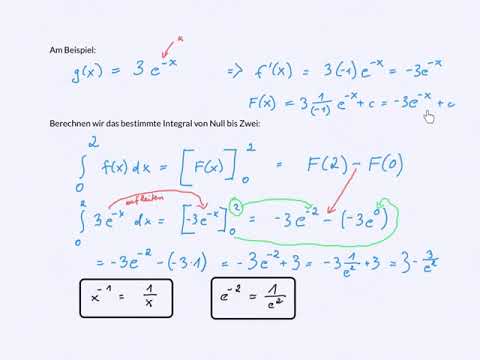 Am Beispiel:
a
g(x) = 3 e^{-x} => f'(x) = 3(-1) e^{-x} = -3e^{-x}
F(x) = 3 \frac{1}{(-1)} e^{-x} + c = -3e^{-x} + c
Berechnen wir das bestimmte Integral von Null bis Zwei:
\int_0^2 f(x) dx = [F(x)]_0^2 = F(2) - F(0)
aufleiten
\int_0^2 3e^{-x} dx = [-3e^{-x}]_0^2 = -3e^{-2} - (-3e^0)
= -3e^{-2} - (-3·1) = -3e^{-2} + 3 = -3 \frac{1}{e^2} + 3 = 3 - \frac{3}{e^2}
x^{-1} = \frac{1}{x} e^{-2} = \frac{1}{e^2}